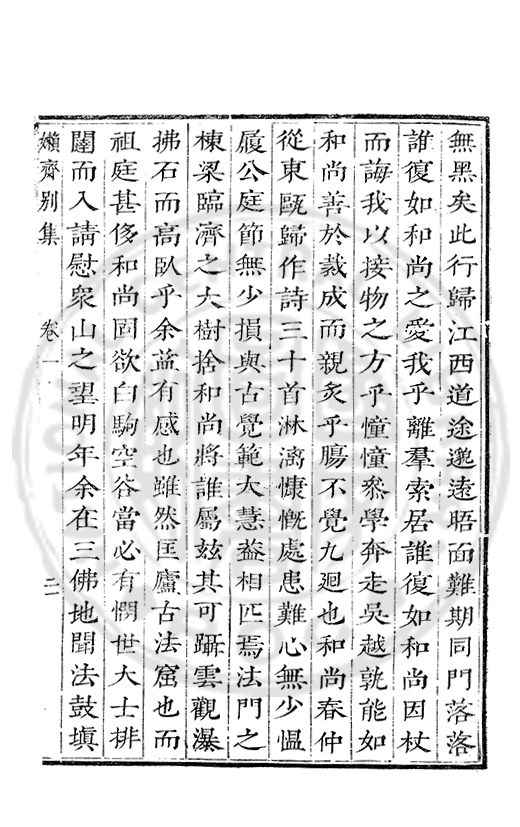 無黑矣此行歸江西道途邈遠晤面難期同門落落
誰復如和尚之愛我乎離羣索居誰復如和尚因杖
而誨我以接物之方乎憧憧叅學奔走吳越孰能如
和尚善於裁成而親炙乎腸不覺九迴也和尚春仲
從東甌歸作詩三十首淋漓慷慨處患難心無少慍
履公庭節無少損與古覺範大慧葢相匹焉法門之
棟梁臨濟之大樹捨和尚將誰屬玆其可躡雲觀瀑
拂石而高臥乎余葢有感也雖然匡廬古法窟也而
祖庭甚侈和尚固欲白駒空谷當必有憫世大士排
闥而入請慰衆山之望明年余在三佛地聞法鼓塡
嬾齋別集
卷一
二